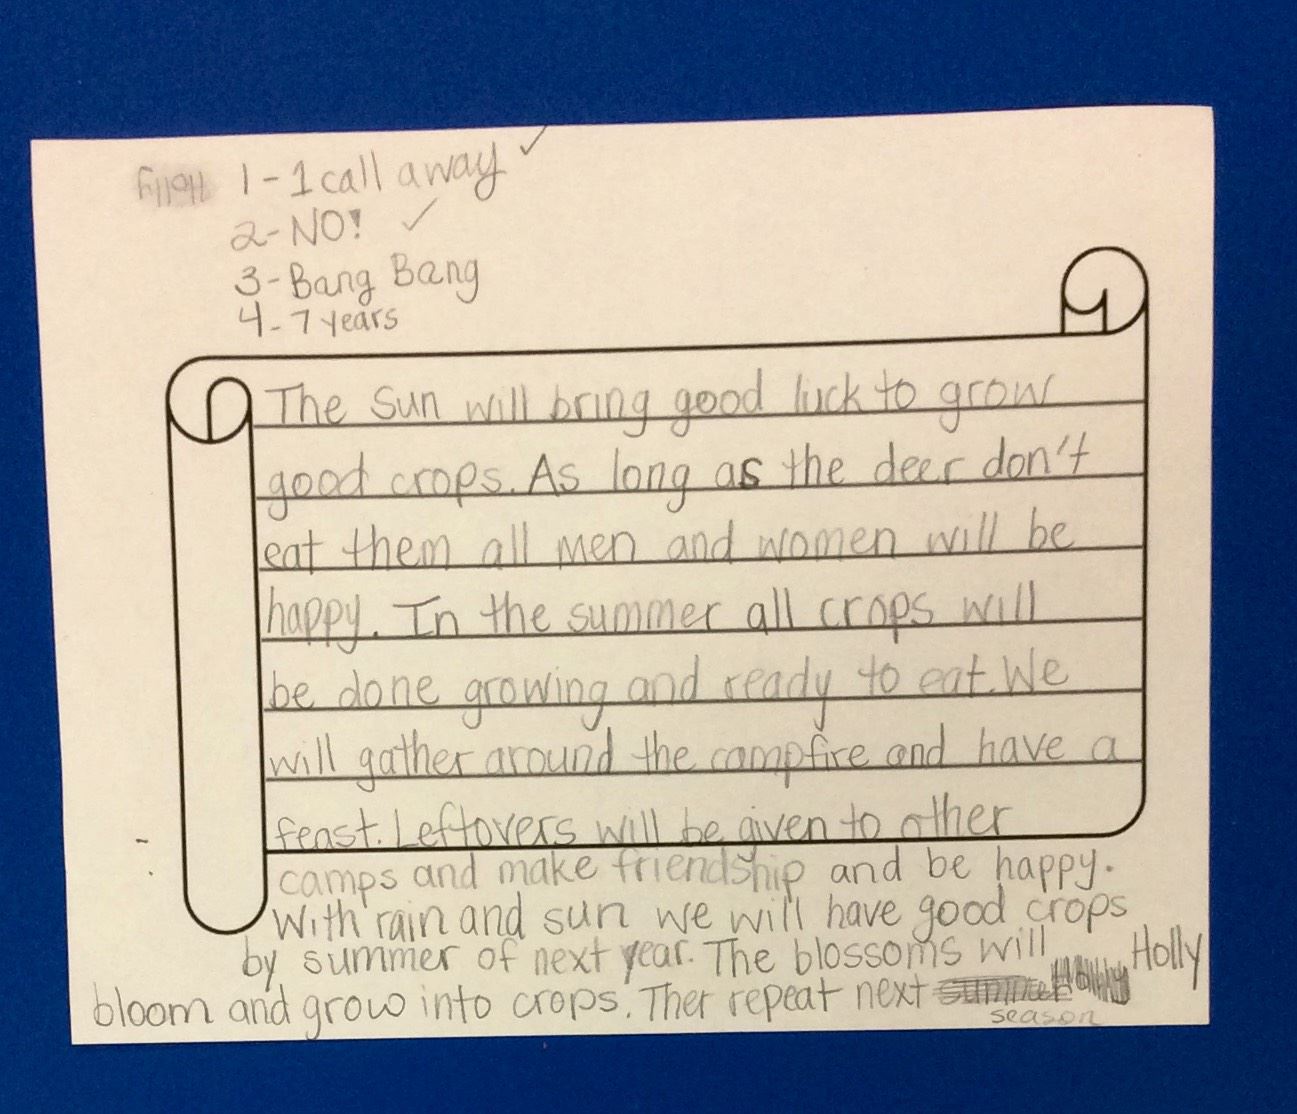 Holly
1-1 call away ✓
2-NO! ✓
3-Bang Bang
4-7 years
The Sun will bring good luck to grow
good crops. As long as the deer don't
eat them all men and women will be
happy. In the summer all crops will
be done growing and ready to eat. We
will gather around the campfire and have a
feast. Leftovers will be given to other
camps and make friendship and be happy.
With rain and sun we will have good crops
by summer of next year. The blossoms will
bloom and grow into crops. Ther repeat next summer
season
Holly